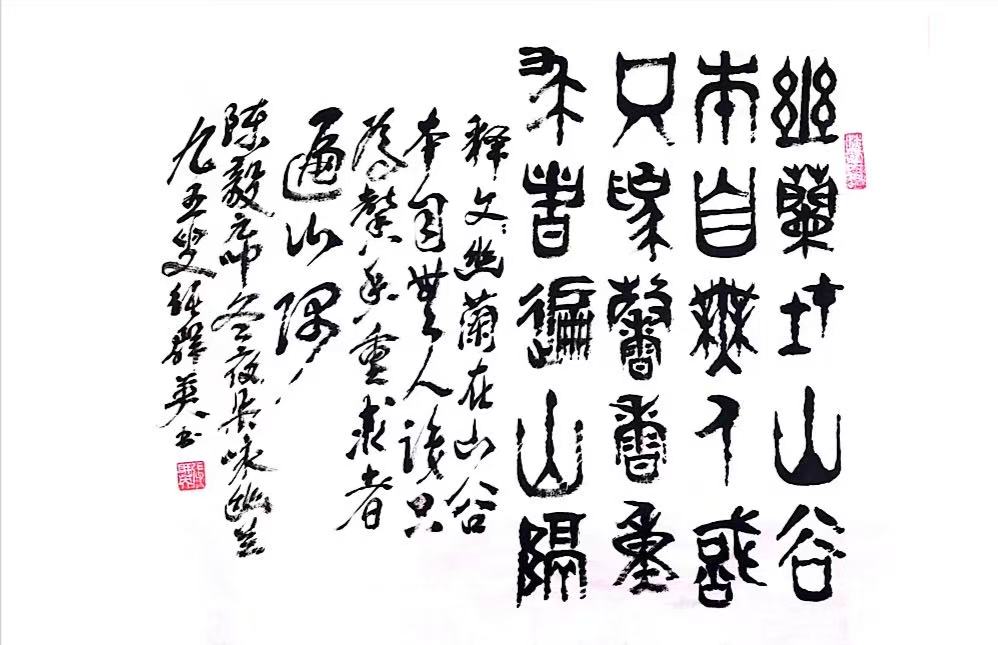 幽蘭在山谷
本自無人識
只為馨香重
求者遍山隅
释文:幽蘭在山谷
本自無人識只
為馨香重求者
遍山隅
陈毅元帅冬夜杂咏幽兰
九五叟张群英书